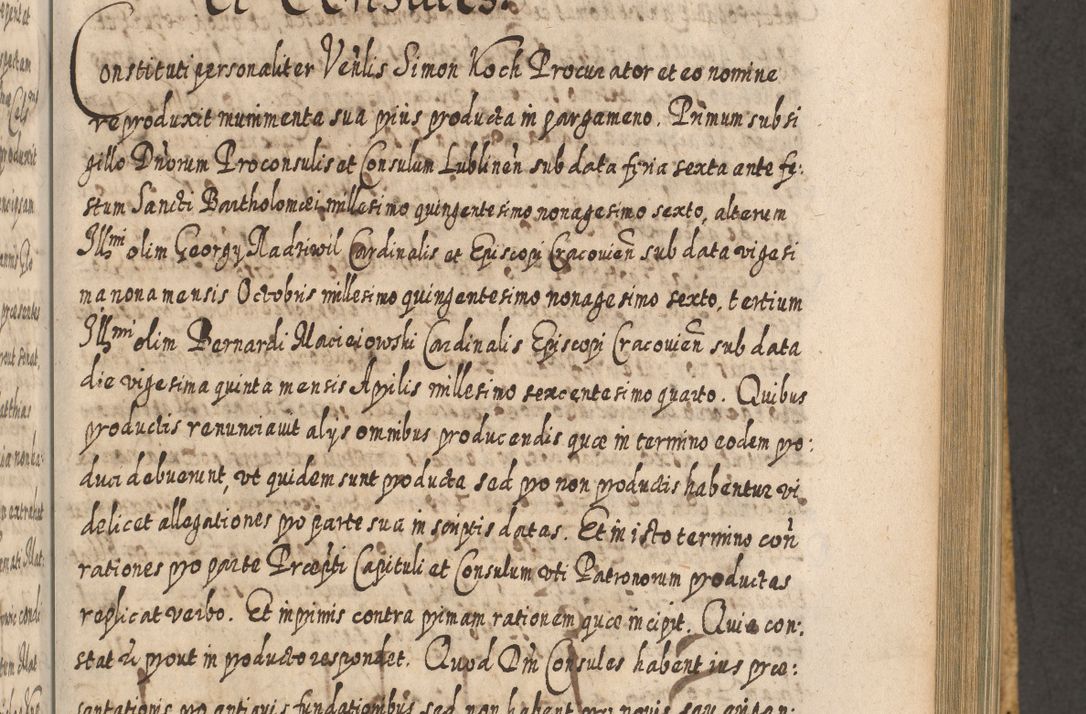 et Consules.
Constituti personaliter Venlis Simon Koch Procurator et eo nomine
reproduxit munimenta sua prius producta in pargameno. Primum sub si
gillo Dnorum Proconsulis et Consulum Lublinen sub data feria sexta ante fe:
stum Sancti Bartholomæi millesimo quingentesimo nonagesimo sexto, alterum
Illmi olim Georgy Radziwil Cardinalis et Episcopi Cracovien sub data vigesi
ma nona mensis Octobris millesimo quingentesimo nonagesimo sexto, tertium
Illmi olim Bernardi Macieiowski Cardinalis Episcopi Cracovien sub data
die vigesima quinta mensis Aprilis millesimo sexcentesimo quarto. Quibus
productis renunciavit alys omnibus producendis quæ in termino eodem pro:
duci debuerunt, vt quidem sunt producta sed pro non productis habentur vi
delicet allegationes pro parte sua in scriptis datas. Et in isto termino con
rationes pro parte Præpti Capituli et Consulum vti Patronorum productas
replicat verbo. Et inprimis contra primam rationem quæ incipit. Quia con:
stat &c prout in producto respondet. Quod Dni Consules habent ius præ:
sentationis pro antiquis fundationibus sed non habent pro novis